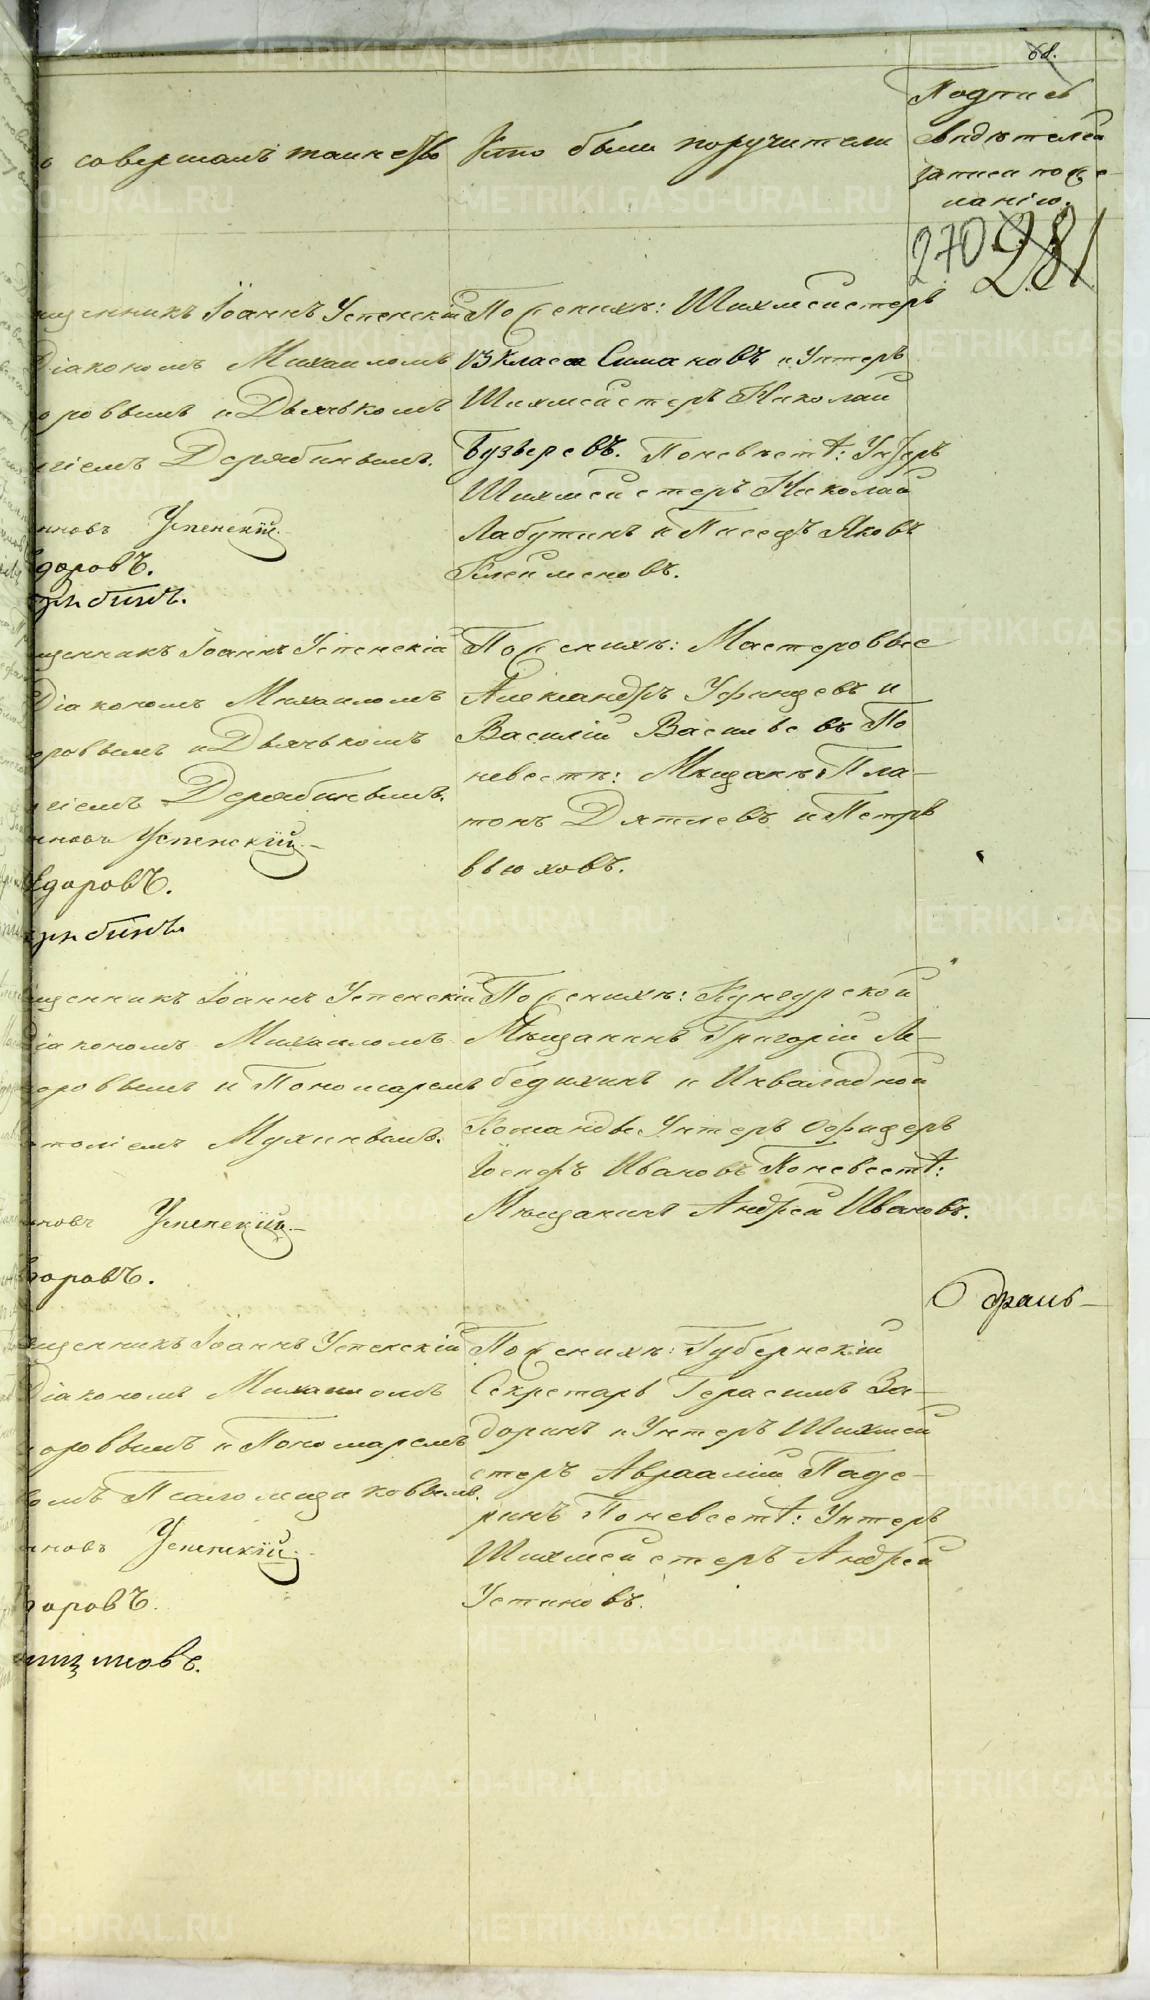 68.
о совершалъ таинство
Кто были поручители
Подпись
свидѣтелей
записи по же-
ланію.
270 281
щенникъ Іоаннъ Успенскій
Діакономъ Михаиломъ
оровымъ и Дьячькомъ
гіемъ Дерябинымъ.
нновъ Успенскій
доровъ.
рябинъ.
По женихѣ: Шихмейстеръ
13 класса Симановъ и Унтеръ
Шихмейстеръ Николай
Бузыревъ. По невѣстѣ: Унтеръ
Шихмейстеръ Николай
Лабутинъ и Писецъ Яковъ
Клейменовъ.
щенникъ Іоаннъ Успенскій
Діакономъ Михаиломъ
оровымъ и Дьячькомъ
гіемъ Дерябинымъ.
нновъ Успенскій
доровъ.
рябинъ.
По женихѣ: Мастеровые
Александръ Уфинцевъ и
Василій Васильевъ По
невестѣ: Мѣщанѣ Пла-
тонъ Дятлевъ и Петръ
Вьюховъ.
щенникъ Іоаннъ Успенскій
Діакономъ Михаиломъ
доровымъ и Пономаремъ
толіемъ Мухинымъ.
нновъ Успенскій
доровъ.
По женихѣ: Кунгурской
Мѣщанинъ Григорій Ле-
бедихинъ и Инвалидной
Команды Унтеръ Офицеръ
Іосифъ Ивановъ По невестѣ:
Мѣщанинъ Андрей Ивановъ.
щенникъ Іоаннъ Успенскій
Діакономъ Михаиломъ
доровымъ и Пономаремъ
омъ Псаломщиковымъ.
нновъ Успенскій
доровъ.
мщиковъ.
По женихѣ: Губернскій
Секретарь Герасимъ За-
доринъ и Унтеръ Шихмей
стеръ Авраамій Паде-
ринъ По невестѣ: Унтеръ
Шихмейстеръ Андрей
Устиновъ.